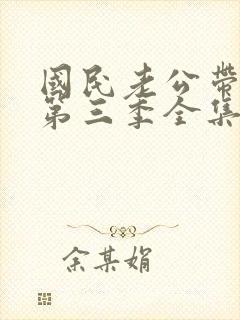 國民老公帶
第三季全集
余某娟